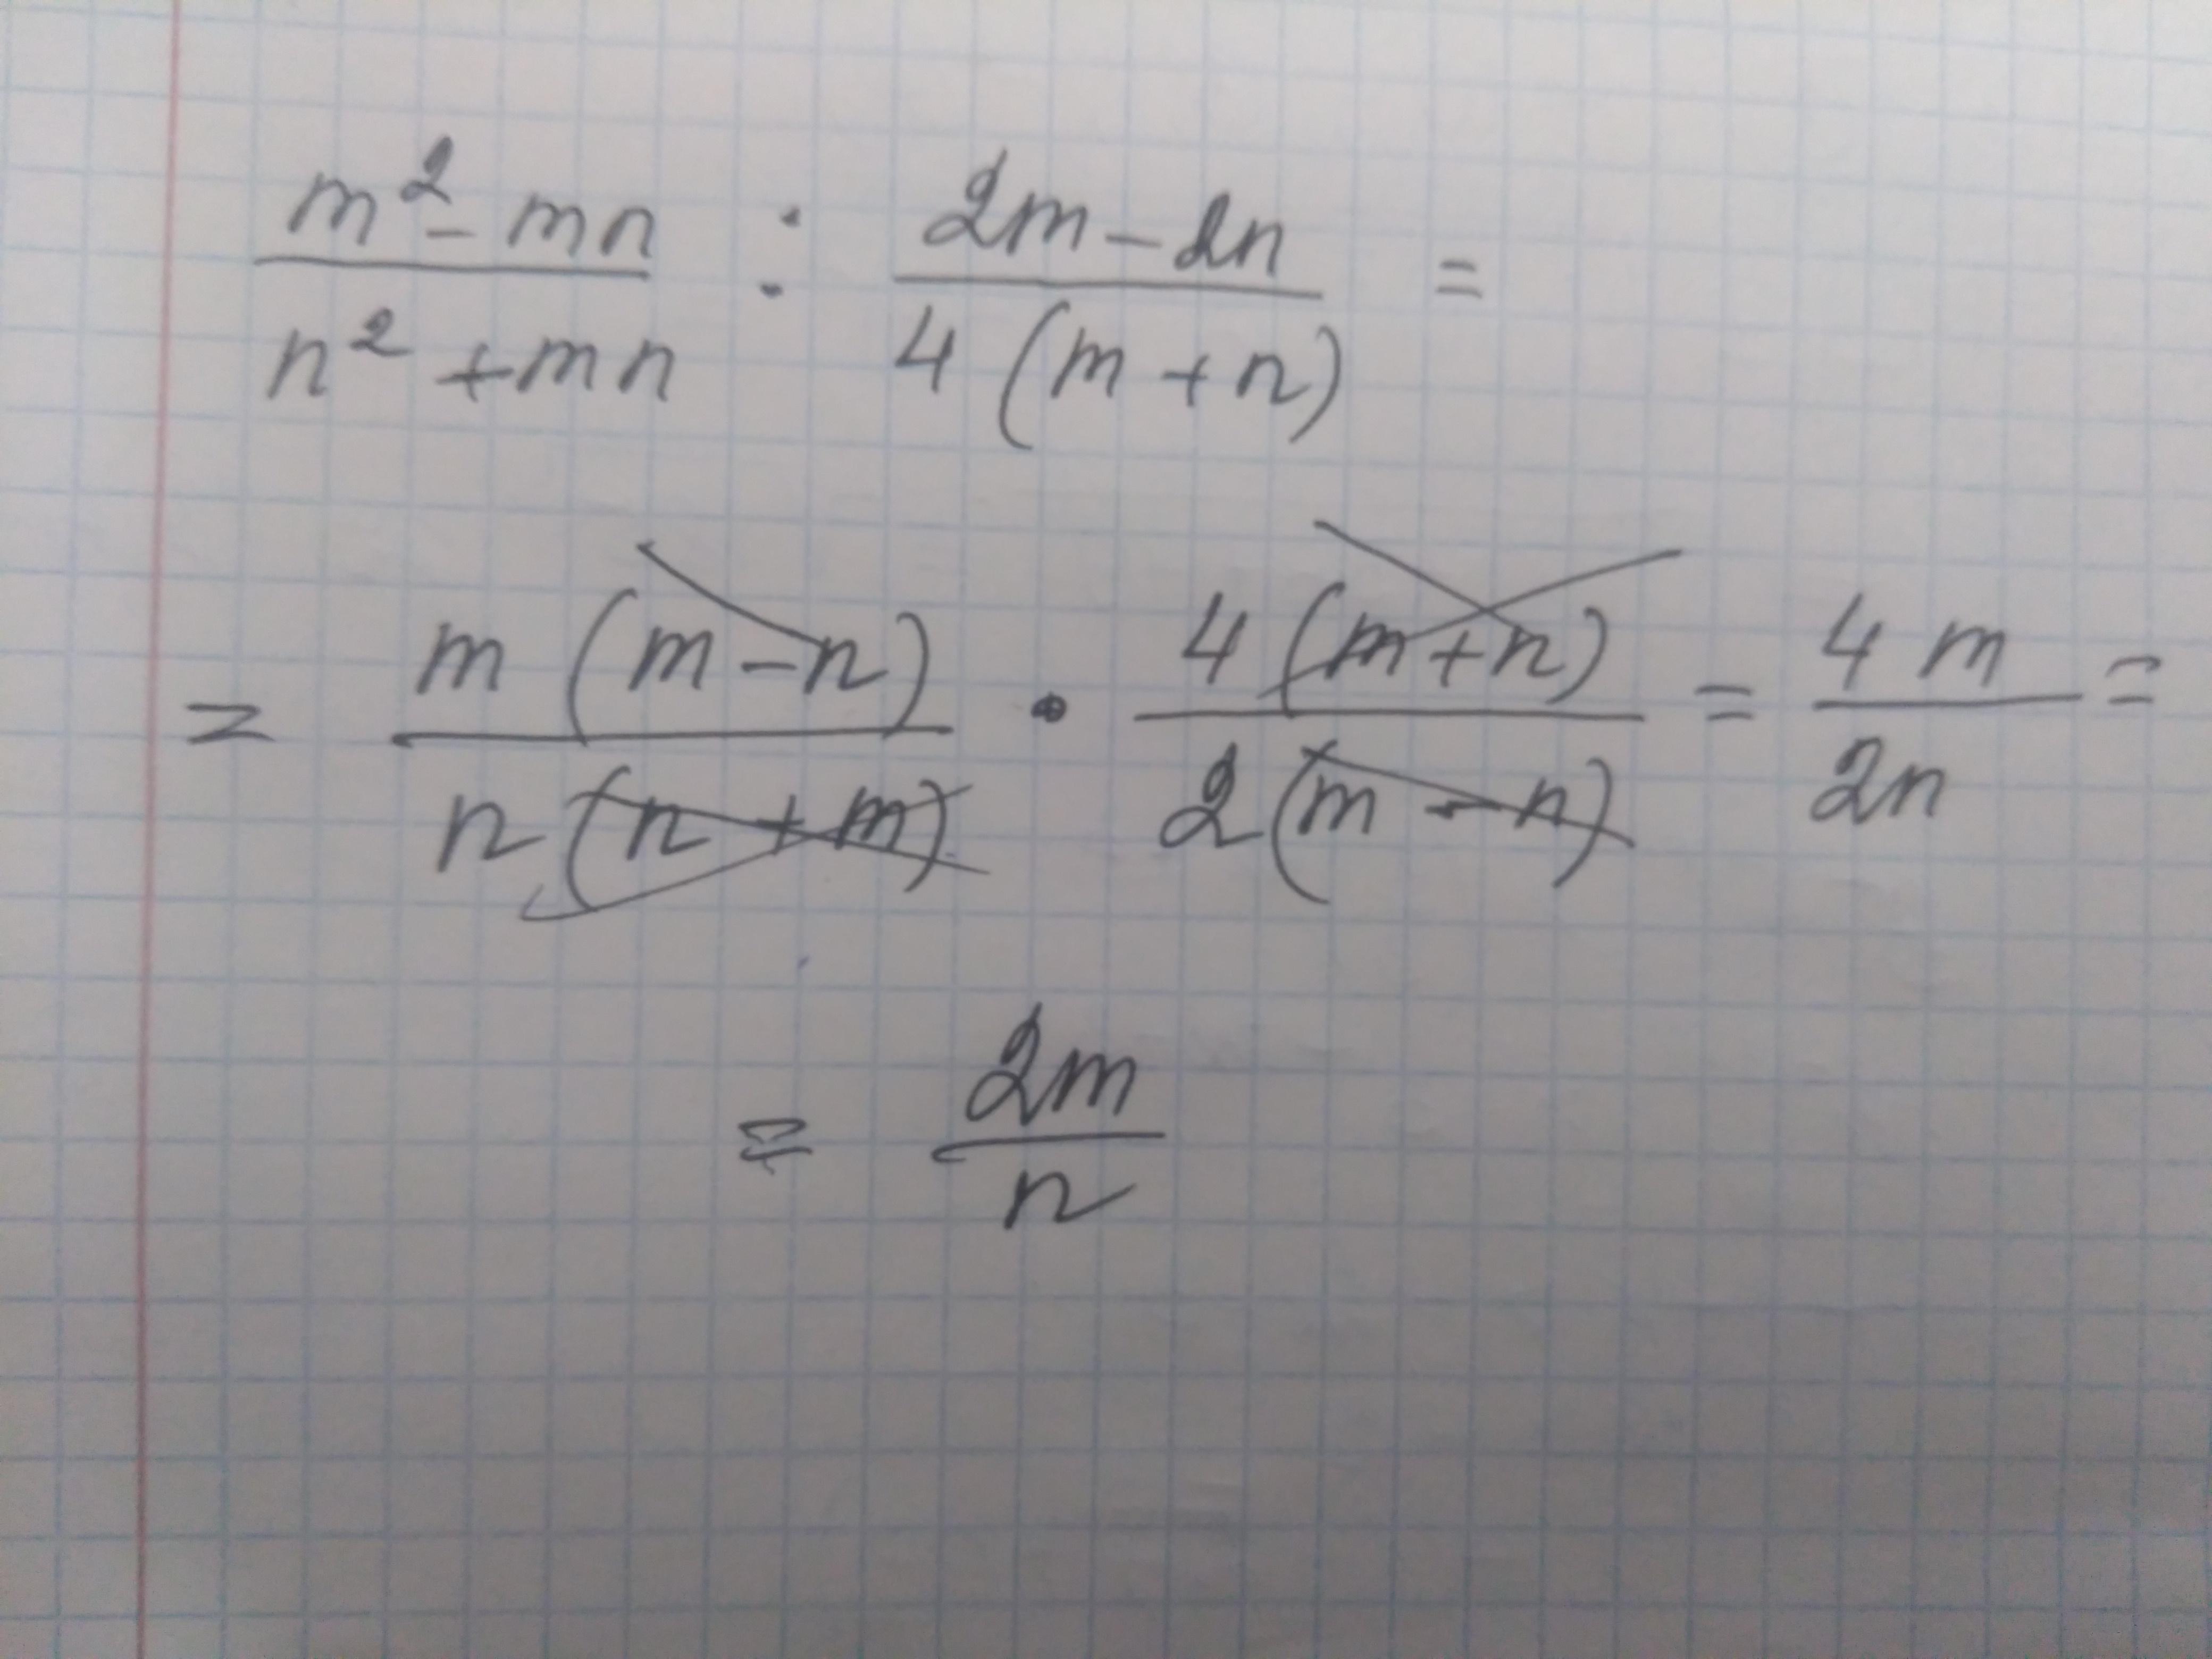 (m² - mn)/(n² + mn) : (2m - 2n)/(4(m + n)) =
= (m(m - n))/(n(n + m)) · (4(m + n))/(2(m - n)) = (4m)/(2n) =
= (2m)/n